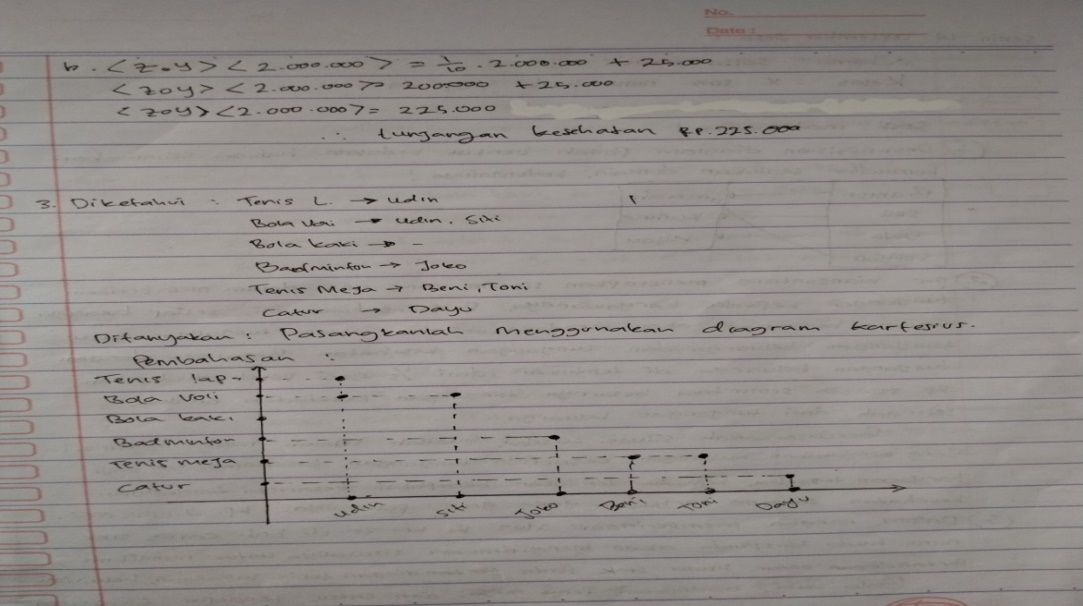 No.
Date :
b. < z o y > < 2.000.000 > = 1/10 . 2.000.000 + 25.000
< z o y > < 2.000.000 > = 200.000 + 25.000
< z o y > < 2.000.000 > = 225.000
∴ tunjangan kesehatan Rp. 225.000
3. Diketahui : Tenis L. → udin
Bola Voli → udin, Siti
Bola kaki → -
Badminton → Joko
Tenis Meja → Beni, Toni
Catur → Dayu
Ditanyakan : Pasangkanlah menggunakan diagram kartesius.
Pembahasan :
Tenis lap-
Bola Voli
Bola kaki
Badminton
Tenis meja
Catur
udin Siti Joko Beni Toni Dayu